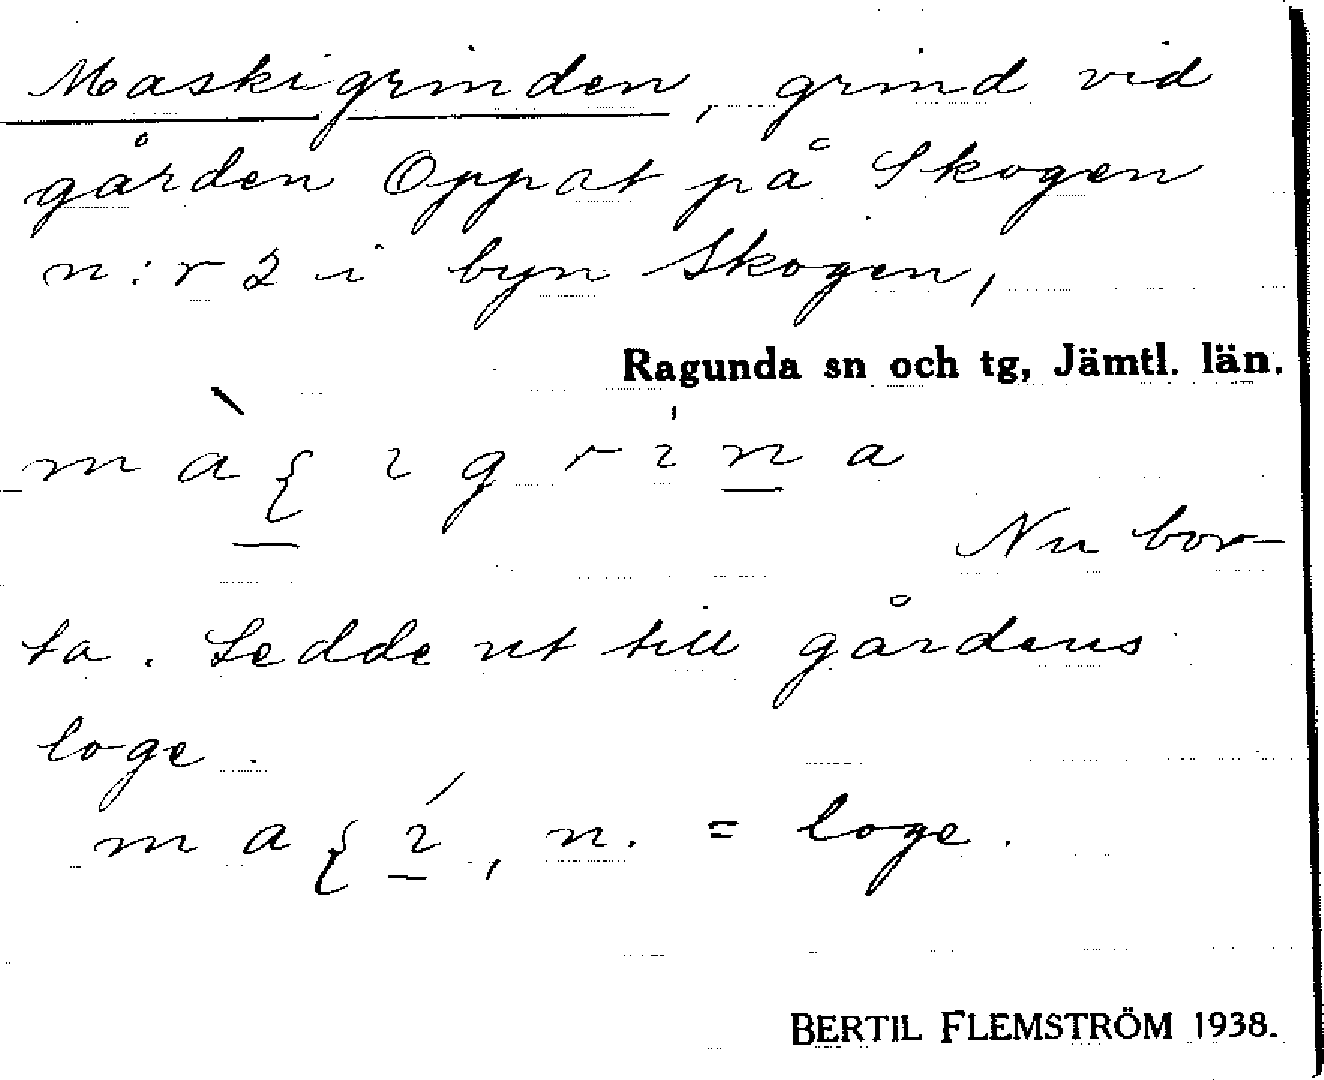 Maskigrinden, grind vid
gården Oppat på Skogen
n:r 2 i byn Skogen,
Ragunda sn och tg, Jämtl. län.
Nu bor-
ta. Ledde ut till gårdens
loge.
n. = loge.
BERTIL FLEMSTRÖM 1938.